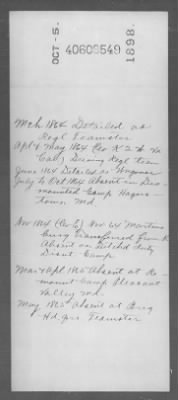 OCT - 5.
40609549
1898.
Mch 1864 Detailed as
Regl Teamster
Apl & May 1864 (Co K 2 W Va
Cav) Driving Regl team
June 1864 Detailed as Wagoner
July to Oct 1864 Absent in Dis-
mounted Camp Hagers-
town Md
Nov 1864 (Co E) Nov 64 Martins
burg Transferred from K
Absent on Detchd duty
Dismt Camp
Mar & Apl 1865 Absent at Re-
mount Camp Pleasant
Valley Md.
May 1865 Absent at Brig
Hd. qrs Teamster